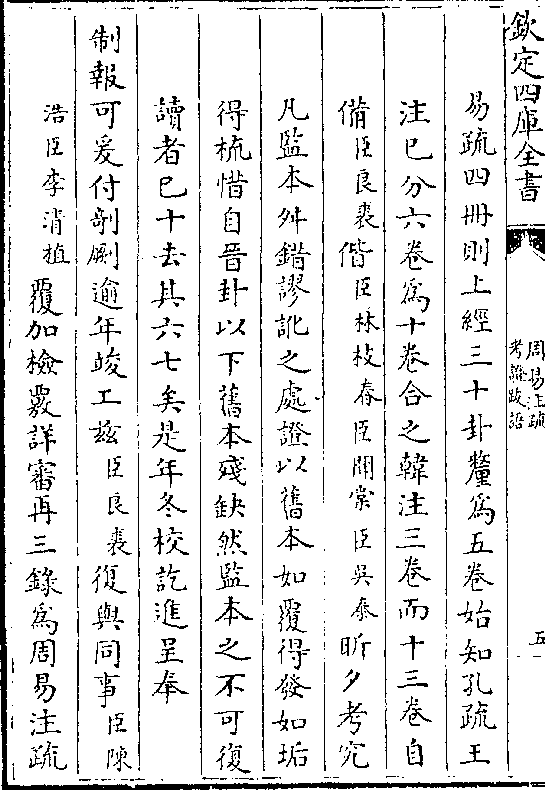 欽定四庫全書
周易注疏
考證跋語
五
易疏四冊則上經三十卦釐為五卷始知孔疏王
注已分六卷為十卷合之韓注三卷而十三卷自
備臣良裘偕臣林枝春臣聞棠臣吳泰昕夕考究
凡監本舛錯謬訛之處證以舊本如覆得發如垢
得梳惜自晉卦以下舊本殘缺然監本之不可復
讀者已十去其六七矣是年冬校訖進呈奉
制報可爰付剞劂逾年竣工兹臣良裘復與同事臣陳
浩臣李清植覆加檢覈詳審再三錄為周易注疏